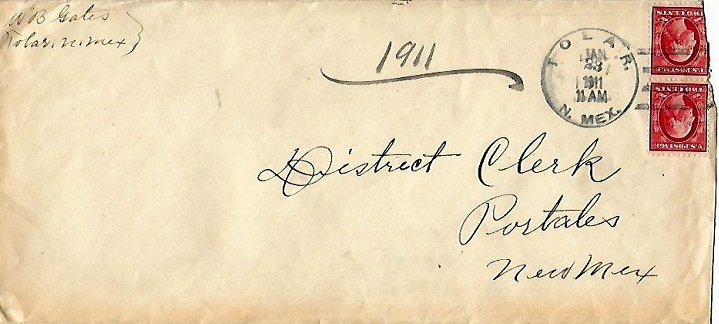 W B Gates
Tolar, N. Mex
1911
TOLAR.
JAN
23
1911
11 AM
N. MEX.
District Clerk
Portales
New Mex
U.S. POSTAGE
TWO CENTS
U.S. POSTAGE
TWO CENTS